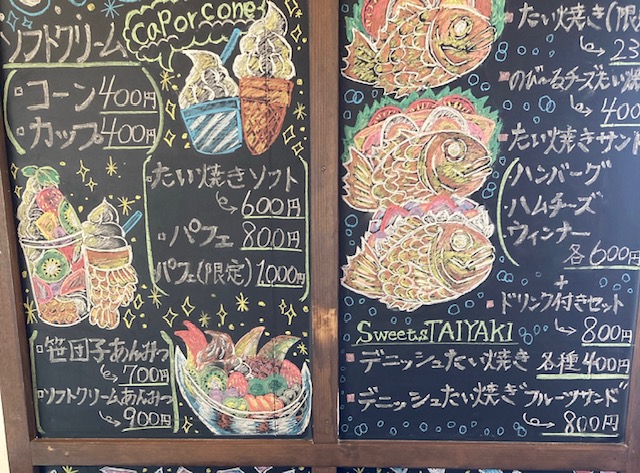 ソフトクリーム
CaPorCone
コーン400円
カップ400円
たい焼きソフト
600円
パフェ 800円
パフェ(限定)1,000円
笹団子あんみつ
700円
ソフトクリームあんみつ
900円
たい焼き(限
のび〜るチーズたい焼
400
たい焼きサンド
ハンバーグ
ハムチーズ
ウィンナー
各600円
+
ドリンク付きセット
800円
Sweets TAIYAKI
デニッシュたい焼き 各種400円
デニッシュたい焼き"フルーツサンド"
800円